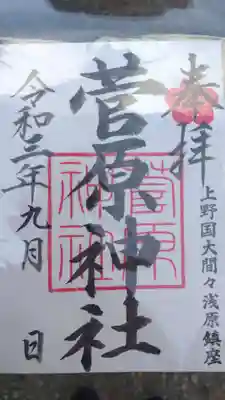 奉拝
上野国大間々浅原鎮座
菅原神社
菅原神社
令和三年九月 日